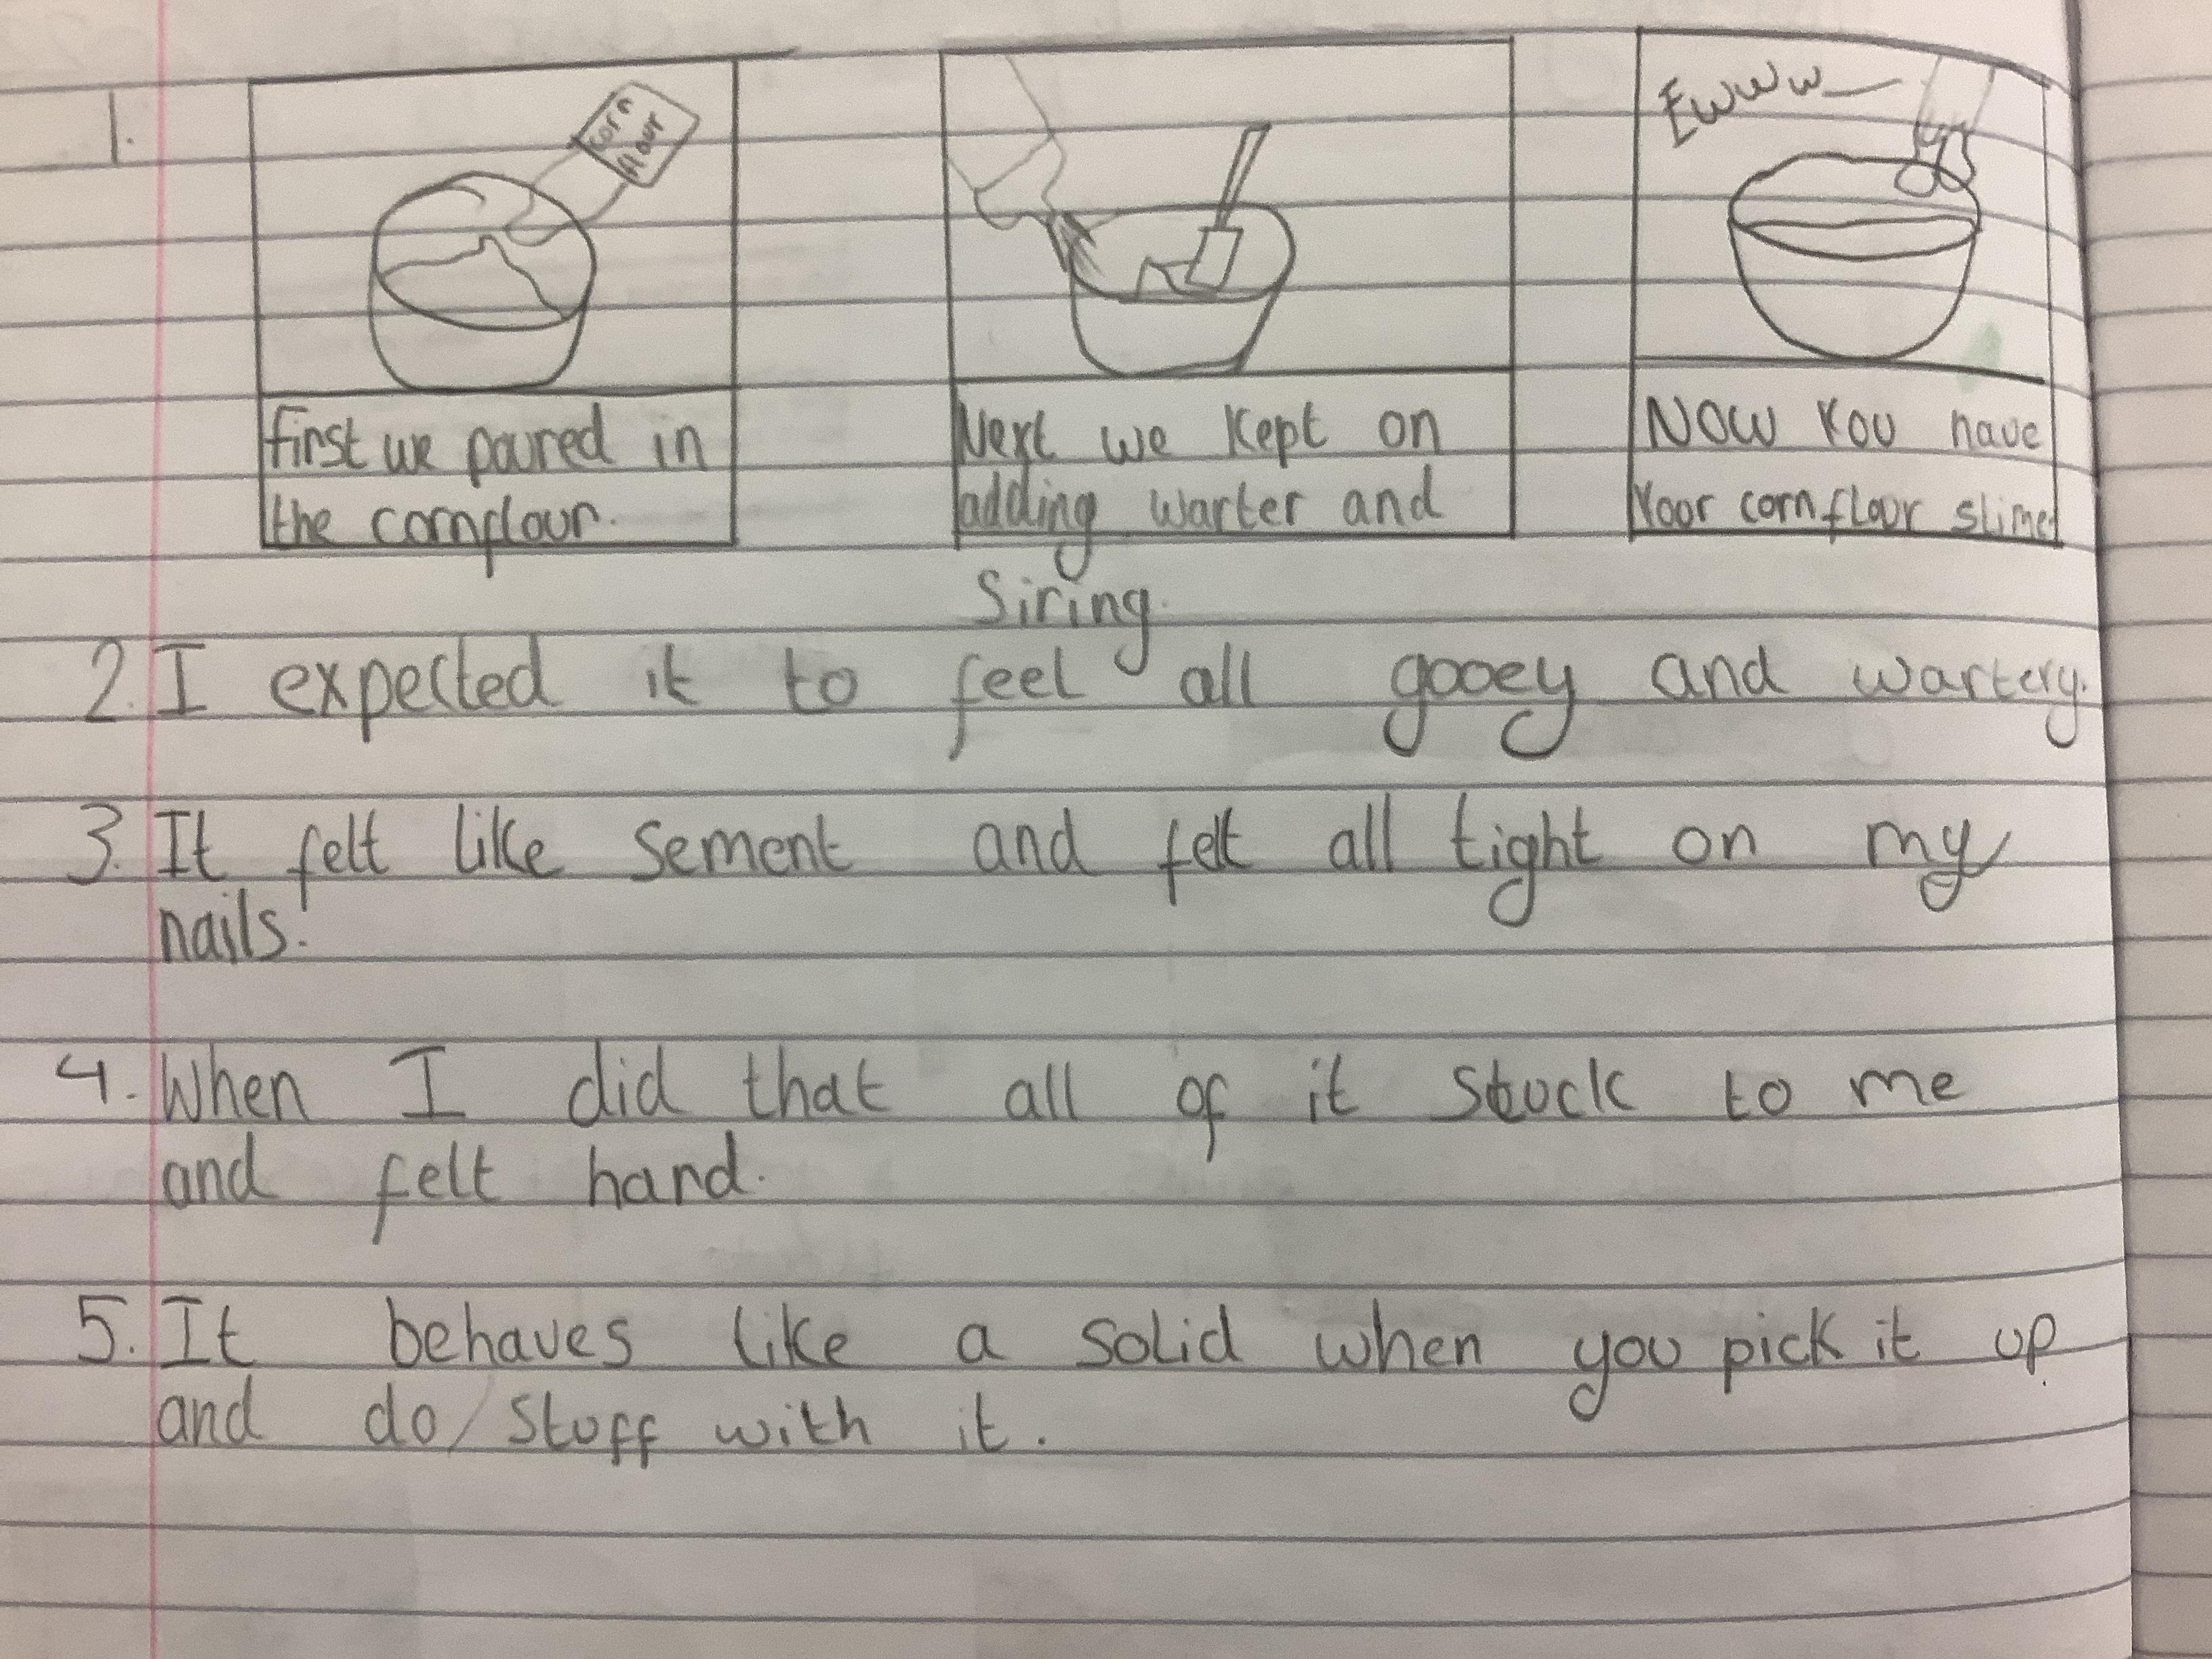 1.
Corn
flour
first we poured in
the cornflour.
Next we kept on
adding warter and
Siring.
Ewww
NOW You have
Yoor cornflour slime
2. I expected it to feel all gooey and wartery.
3. It felt like sement and felt all tight on my
nails.
4. When I did that all of it stuck to me
and felt hard.
5. It behaves like a solid when you pick it up
and do stuff with it.